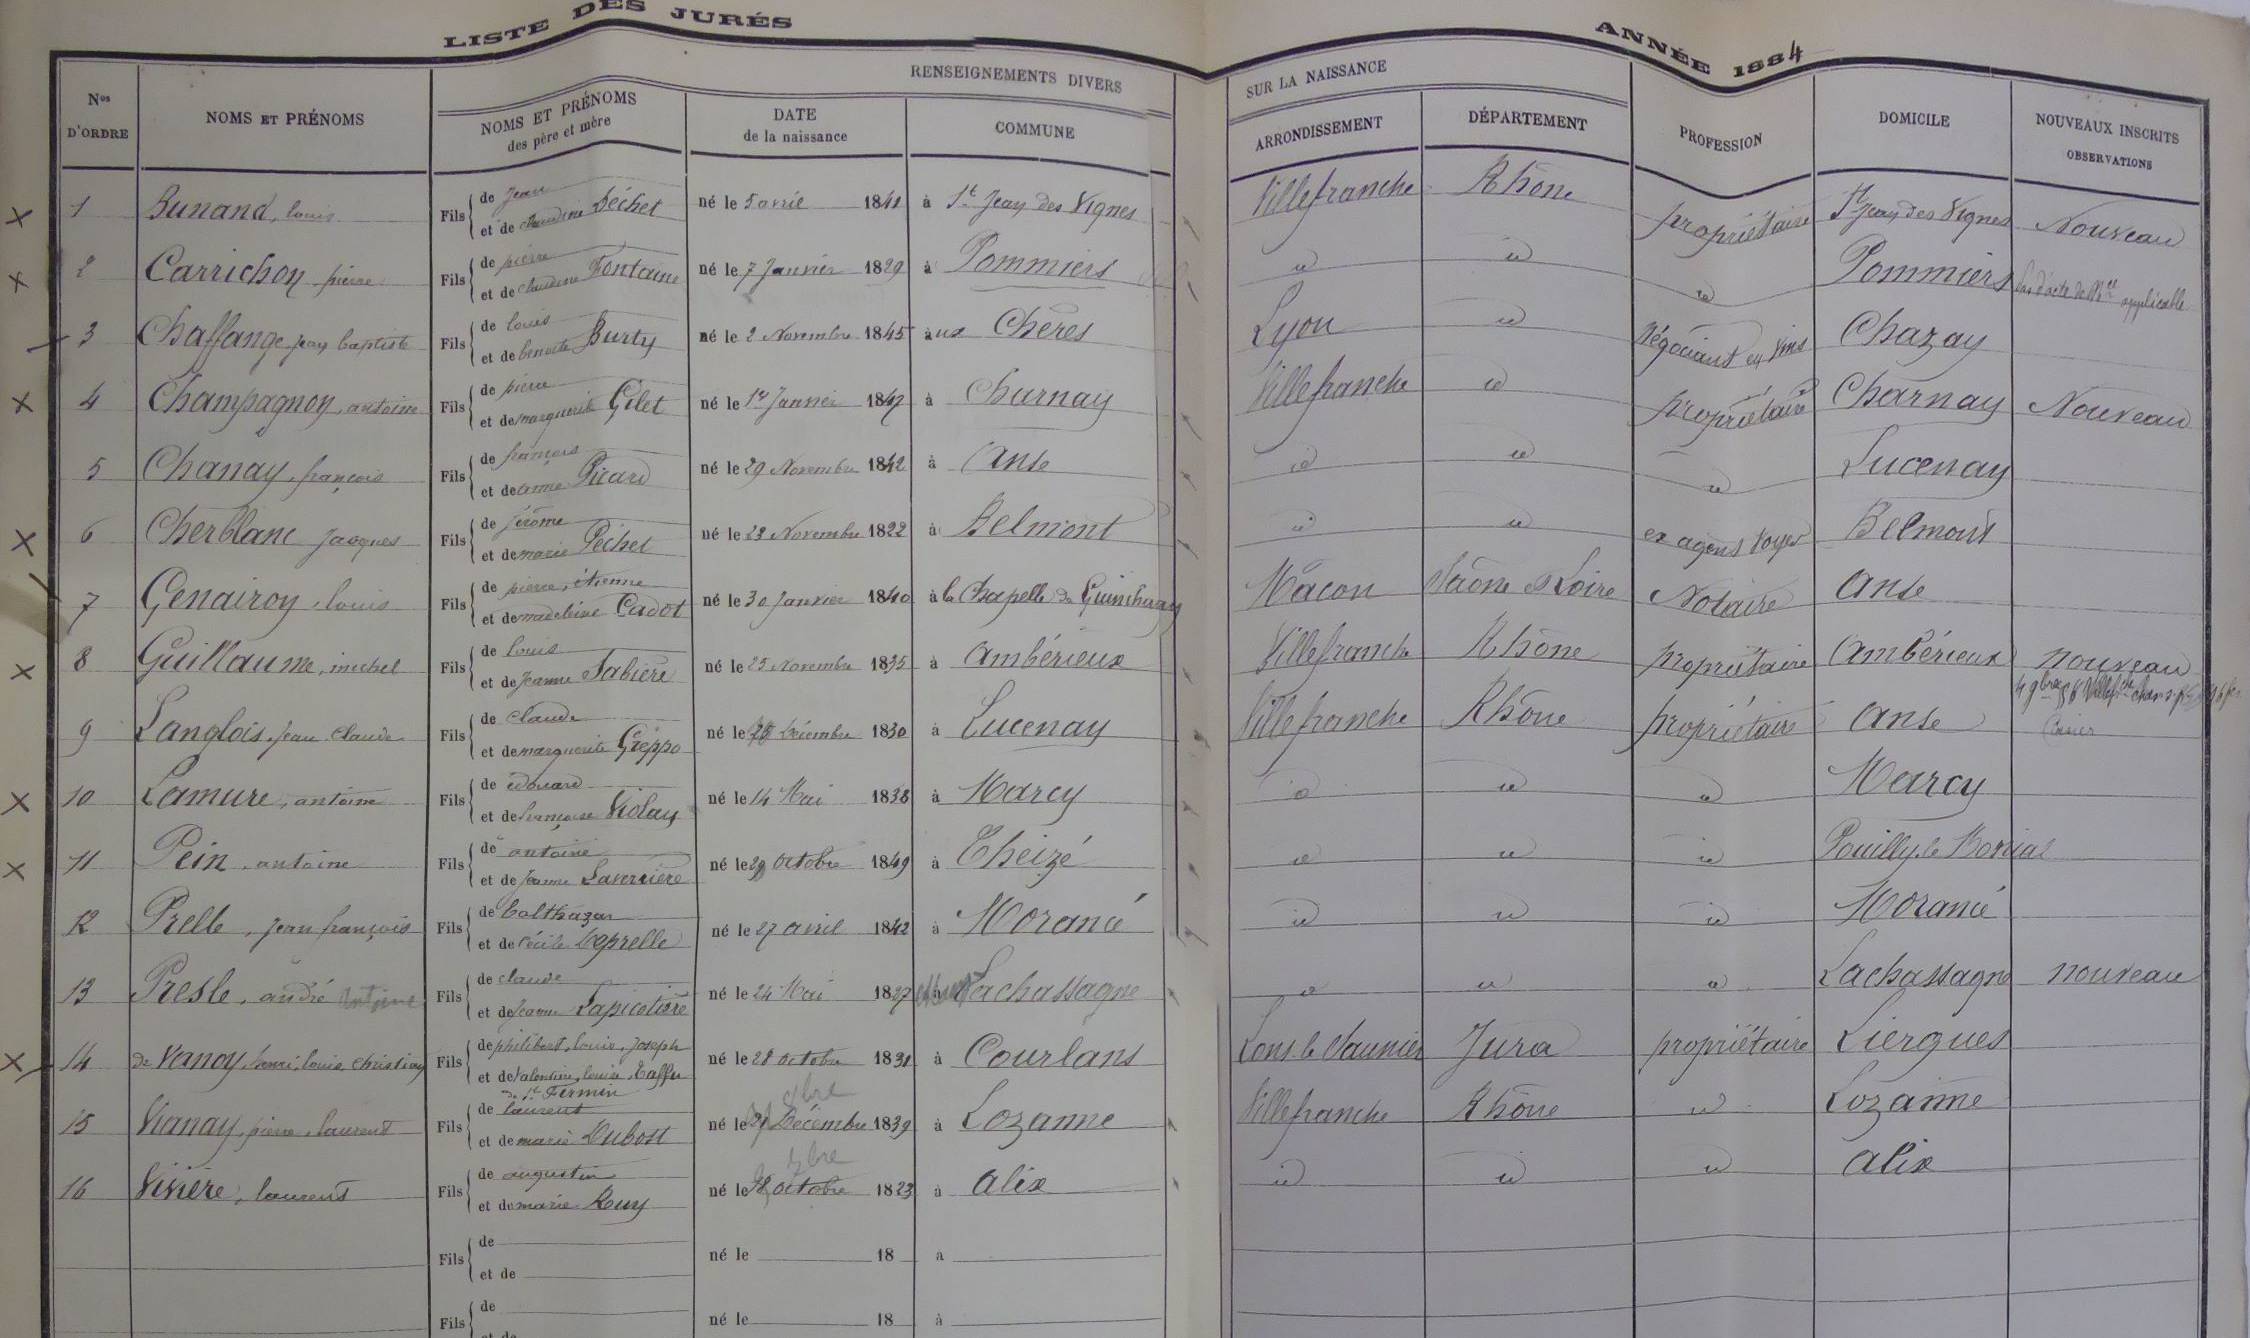 LISTE DES JURÉS ANNÉE 1884
RENSEIGNEMENTS DIVERS SUR LA NAISSANCE
Nos D'ORDRE NOMS ET PRÉNOMS NOMS ET PRÉNOMS des père et mère DATE de la naissance COMMUNE ARRONDISSEMENT DÉPARTEMENT PROFESSION DOMICILE NOUVEAUX INSCRITS OBSERVATIONS
x 1 Bunand, louis Fils de Jean et de claudine Déchet né le 5 avril 1841 à St Jean des Vignes Villefranche Rhône propriétaire St Jean des Vignes Nouveau
x 2 Carrichon, pierre Fils de pierre et de claudine Fontaine né le 7 Janvier 1829 à Pommiers id id id Pommiers applicable
3 Chaffange Jean baptiste Fils de louis et de benoite Burty né le 2 Novembre 1845 aux Chères Lyon id Négociant en Vins Chazay
x 4 Champagnon, antoine Fils de pierre et de marguerite Gilet né le 1er Janvier 1847 à Charnay Villefranche id propriétaire Charnay Nouveau
5 Chanay, françois Fils de françois et de anne Picard né le 29 Novembre 1842 à Anse id id id Lucenay
x 6 Cherblanc Jacques Fils de Jérôme et de marie Péchet né le 23 Novembre 1822 à Belmont id id ex agent Voyer Belmont
7 Genairon, louis Fils de pierre, étienne et de madeleine Cadot né le 30 Janvier 1840 à la Chapelle de Guinchay Mâcon Saône et Loire Notaire Anse
x 8 Guillaume, michel Fils de louis et de Jeanne Sabière né le 25 Novembre 1835 à Ambérieux Villefranche Rhône propriétaire Ambérieux nouveau
9 Langlois, Jean Claude Fils de Claude et de marguerite Greppo né le Décembre 1830 à Lucenay Villefranche Rhône propriétaire Anse
x 10 Lamure, antoine Fils de édouard et de françoise Violay né le 14 Mai 1838 à Marcy id id id Marcy
x 11 Pein, antoine Fils de antoine et de Jeanne Laverrière né le 29 Octobre 1849 à Theizé id id id Pouilly le Monial
12 Prelle, Jean françois Fils de balthazar et de Cécile Deprelle né le 27 avril 1842 à Morancé id id id Morancé
13 Presle, andré antoine Fils de claude et de Jeanne Lapicotière né le 24 Mai 1827 à Lachassagne id id id Lachassagne nouveau
x 14 de Vanoy, henri, louis christian Fils de philibert, louis, Joseph et de Valentine, louise, Taffu de St Fermin né le 28 octobre 1831 à Courlans Lons le Saunier Jura propriétaire Liergues
15 Vianay, pierre, laurent Fils de laurent et de marie Dubost né le Décembre 1839 à Lozanne Villefranche Rhône id Lozanne
16 Vivière, laurent Fils de augustin et de marie Ruy né le octobre 1823 à Alix id id id Alix
Fils de et de né le 18 a
Fils de et de né le 18 à